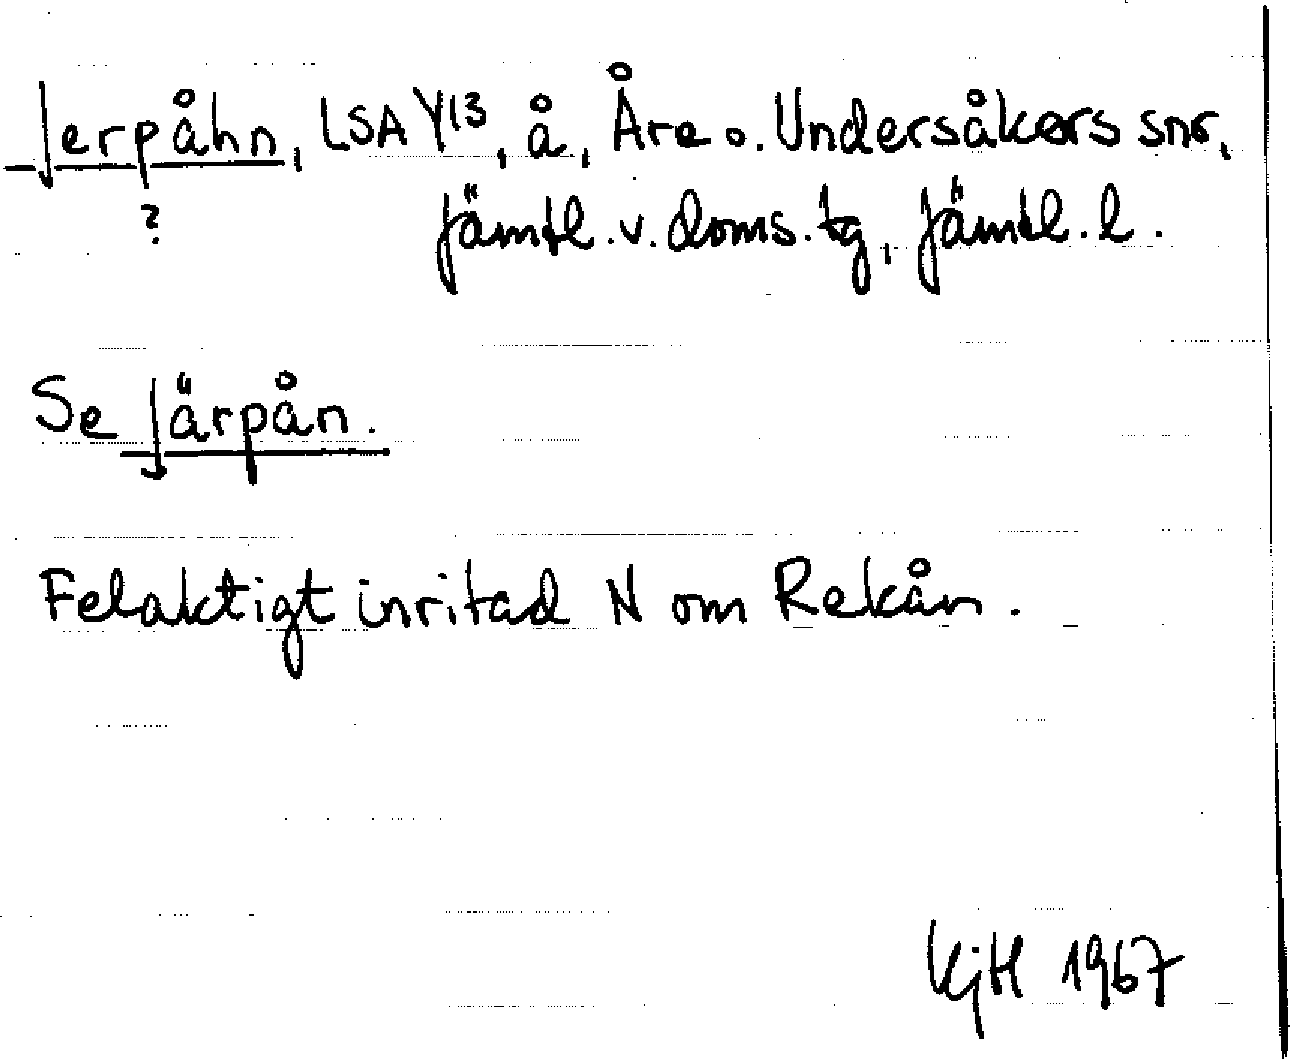 Jerpåhn, LSA Y13, å, Åre o. Undersåkers snr,
?
Jämtl. v. doms. tg, Jämtl. l.
Se Järpån.
Felaktigt inritad N om Rekån.
KjH 1967